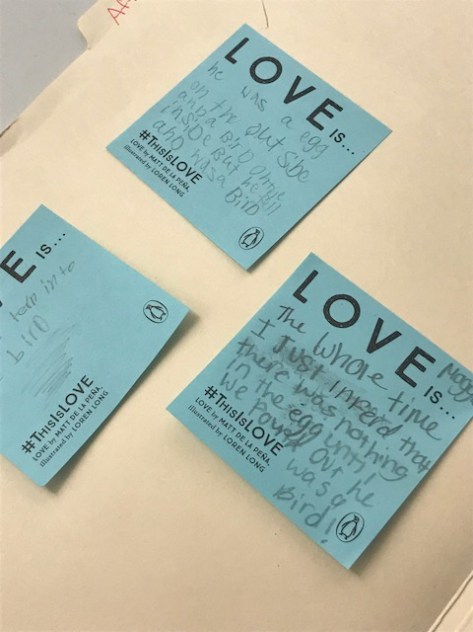 LOVE
IS...
he was a egg
on the out side
and a Bird
inside But he
and was a
Bird
#THISISLOVE
LOVE by MATT DE LA PEÑA,
illustrated by LOREN LONG
VE IS...
in to
bird
#THISISLOVE
LOVE by MATT DE LA PEÑA,
illustrated by LOREN LONG
LOVE
IS...
The whole time
I Just Inferd that
there was nothing
in the egg until
we out he
was a
Bird!
#THISISLOVE
LOVE by MATT DE LA PEÑA,
illustrated by LOREN LONG